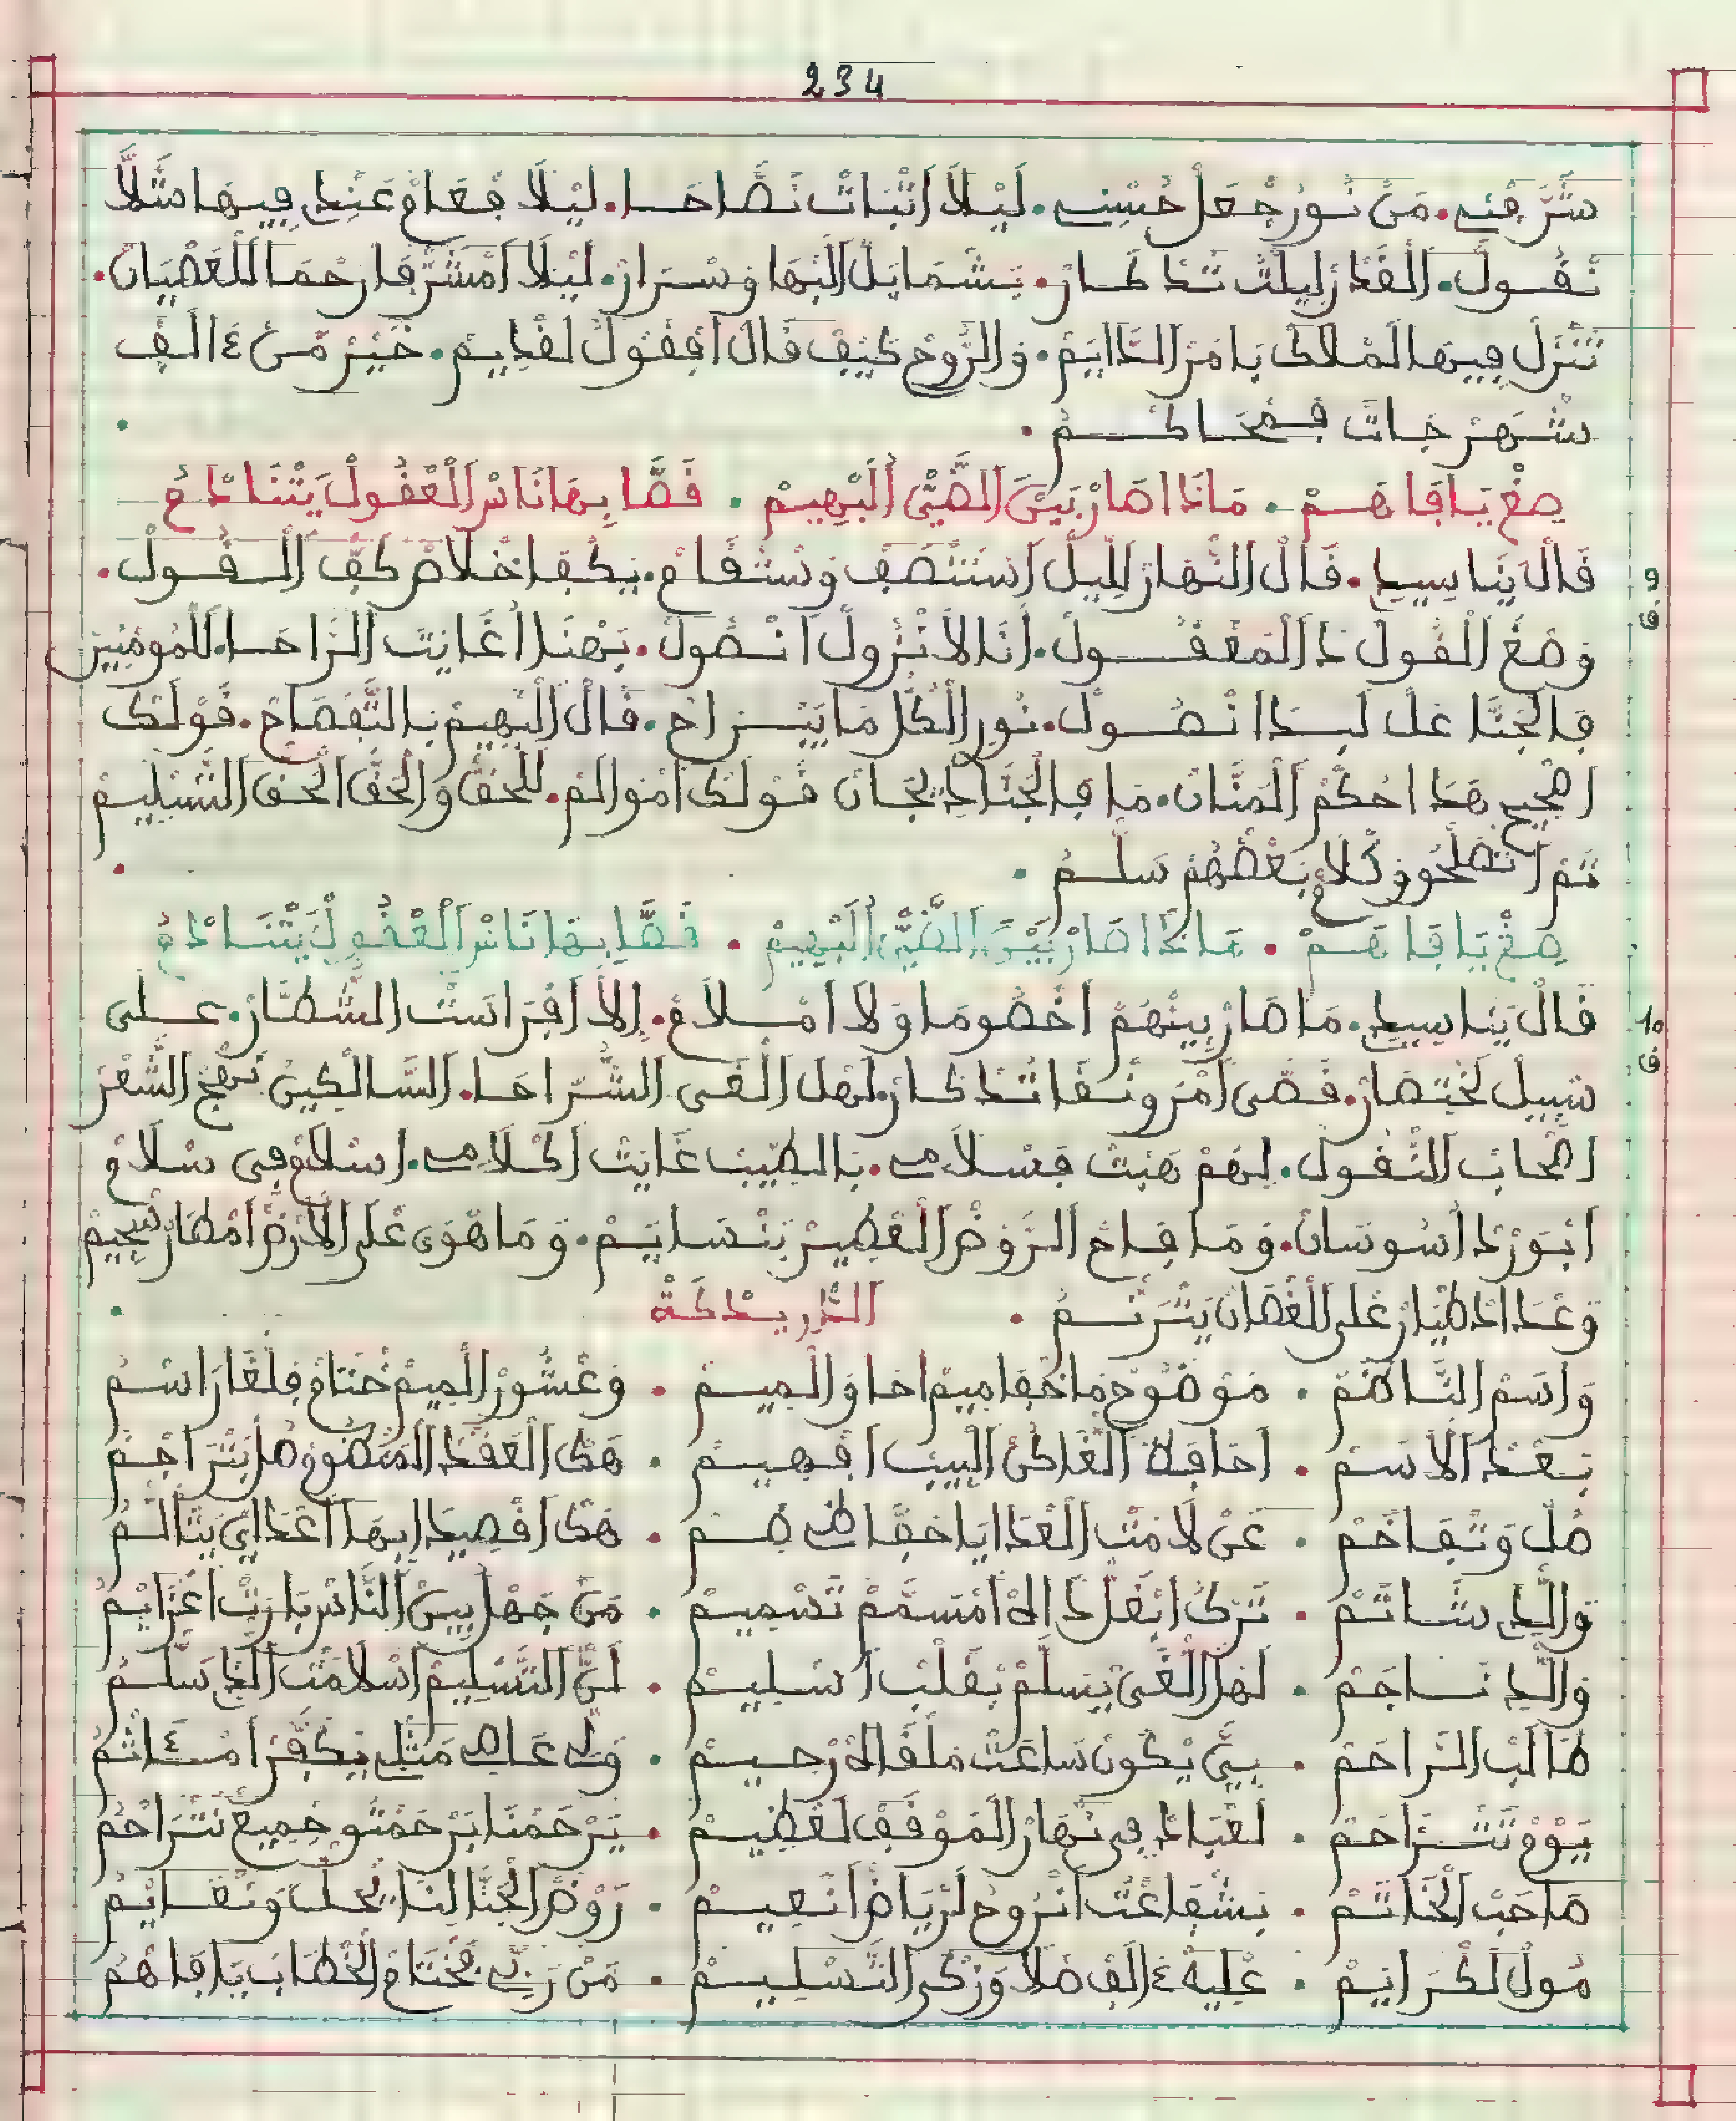 234
شَرَّفْنِي. مَنْ نُورْ جْعَلْ حُسْنِي. لَيْلَا اتْبَاتْ نَصَّاحَا. لَيْلَا فْعَامْ عَنْدِي فِيهَا مَثْلَا
نْقُولْ. الْقَدْرْ لِيلْتْ تَدْكَارْ. بَشْمَايَلْ الْبْهَا وَسْرَارْ. لَيْلَا امْشَرّْفَا رحْمَا لَلْعَصْيَانْ.
تَنْزَلْ فِيهَا لَمْلَاكْ بَامَرْ الدَّايَمْ. وَالرُّوحْ كِيفْ قَالْ افْقُولْ لَقْدِيمْ. خَيْرْ مَنْ ءَالَفْ
شْهَرْ جَاتْ فَمْحَاكَمُ
صِغْ يَا فَاهَمْ . مَاذَا صَارْ بَيْنَ الضَّيّْ الْبْهِيمْ . قَصَّا بِهَا نَاسْ الْعْقُولْ يَتْنَادْمُ
9
قَالْ يَنَا سِيدِي. قَالْ النّْهَارْ لِلِّيلْ اسْتَنْصَفْ وَسْتْقَامْ. يَكْفَا خْلَاصْ كَفّْ الْقُولْ.
ف
وَصْغَ الْقُولْ دَ الْمَعْقُولْ. أَنَا لَا نْزُولْ انْصُولْ. بَهْنَا أغَايْتْ الرَّاحَا. لَلْمُومْنِينْ
فَالْجَنَّا غَلْ لَبْدَا نْصُولْ. نُورِ الْكُلّْ مَا يَبْزَاحْ. قَالْ الْبْهِيمْ بَالتَّفْصَاحْ. قَوْلَكْ
اصْحِيحْ هَدَا حُكْمْ الْمَنَّانْ. مَا فَالْجَنَّا دِيجَانْ قَوْلَكْ امْوَالَمْ. لَلْحَقّْ وَالْحَقّْ الْحَقّْ التَّسْلِيمْ
تَمّْ اتْصَلْحُو وْكُلَّا عْ بَعْضْهُمْ سَلَّمُ
صِغْ يَا فَاهَمْ . مَاذَا صَارْ بَيْنَ الضَّيّْ الْبْهِيمْ . قَصَّا بِهَا نَاسْ الْعْقُولْ يَتْنَادْمُ
10
قَالْ يَنَا سِيدِي. مَا صَارْ بِينْهُمْ اخْصُومَا وَلَا امْلَامْ. إلَّا افْرَاسْتْ الشّْطَّارْ. عَلَى
ف
سْبِيلْ لَخْتِصَارْ. قَصَّى أَمْرْ وَنْقَا تَدْكَارْ. لَهْلْ الْفَنّْ الشُّرَّاحَا. السَّالْكِينْ نَهْجْ الشَّعْرْ
اصْحَابْ النّْقُولْ. لِهُمْ هَبْتْ فَسْلَامِي. بَالطِّيبْ غَايْتْ اكْلَامِي. اسْلَامْ فِي سْلَامْ
ابْوَرْدْ اسُوسَانْ. وَمَا فَاحْ الرَّوْضْ الْعْطِيرْ بَنْسَايَمْ. وَمَا هْوَى عْلَى الْأَرْضْ أَمْطَارْ سْجِيمْ
وَعْدَادْ طْيَارْ عْلَى لَلْغْصَانْ يَتْرَنَّمُ . الدّْرِيدْكَةْ
وَاسَمْ النَّاظَمْ . مَوْضُوحْ مَا خْفَا مِيمْ احَا وَالْمِيمْ . وَعْشُورْ الْمِيمْ خْتَامْ فَلْغَا رَاسْمُ
بَعْدْ الْاسَمْ . احَافَظْ الْغَادَكْنْ الْبِيبْ افْهِيمْ . هَاكْ الْعَقْدْ الْمَنْظُومْ صْلْ بَتْرَاجْمُ
صْلْ وَتْفَاخَمْ . عَنْ لَامْتْ الْعْدَا يَا حَفَّاظِي صَمْ . هَاكْ اقْصِيدَا بِهَا أعْدَايْ يَتْأَلْمُ
وَالِّدِي شَاتَمْ . تَرْكُ ابْغَلْ دَالَهْ امْسَمَّمْ تَسْمِيمْ . مَنْ جَهْلُ بِينْ النَّاسْ بَارَتْ اعْزَايْمُ
وَالِّدِي نَاجَمْ . لَهْلْ الْفَنّْ يْسَلَّمْ بْقَلْبْ اسْلِيمْ . لَنّْ التَّسْلِيمْ اسْلَامْتْ الَّدِي سَلَّمُ
طَالْبْ الرَّاحَمْ . بِيَّ يْكُونْ سَاعْتْ مَلْقَاهْ رْحِيمْ . وَلِّي عَاصِي مَثْلِي يْكَفَّرْ امْءَاثْمُ
يَوْمْ نَتْزَاحَمْ . لَعْبَادْ فِي نْهَارْ الْمَوْقَفْ لَعْظِيمْ . يَرْحَمْنَا بَرْحَمْتُو جْمِيعْ نَتْرَاحْمُ
صَاحَبْ الْخَاتَمْ . بَشْفَاعْتُ انْرُوحْ لَرْيَاضْ انْعِيمْ . رَوْضْ الْجَنَّا لْنَا يْحَلّْ وَنْغَانْمُ
مُولْ لَكْرَايَمْ . عْلِيهْ ءَالَفْ صْلَا وَزْكَى التَّسْلِيمْ . مَنْ رَبِّي فَخْتَامْ الْخْطَابْ يَا فَاهْمُ